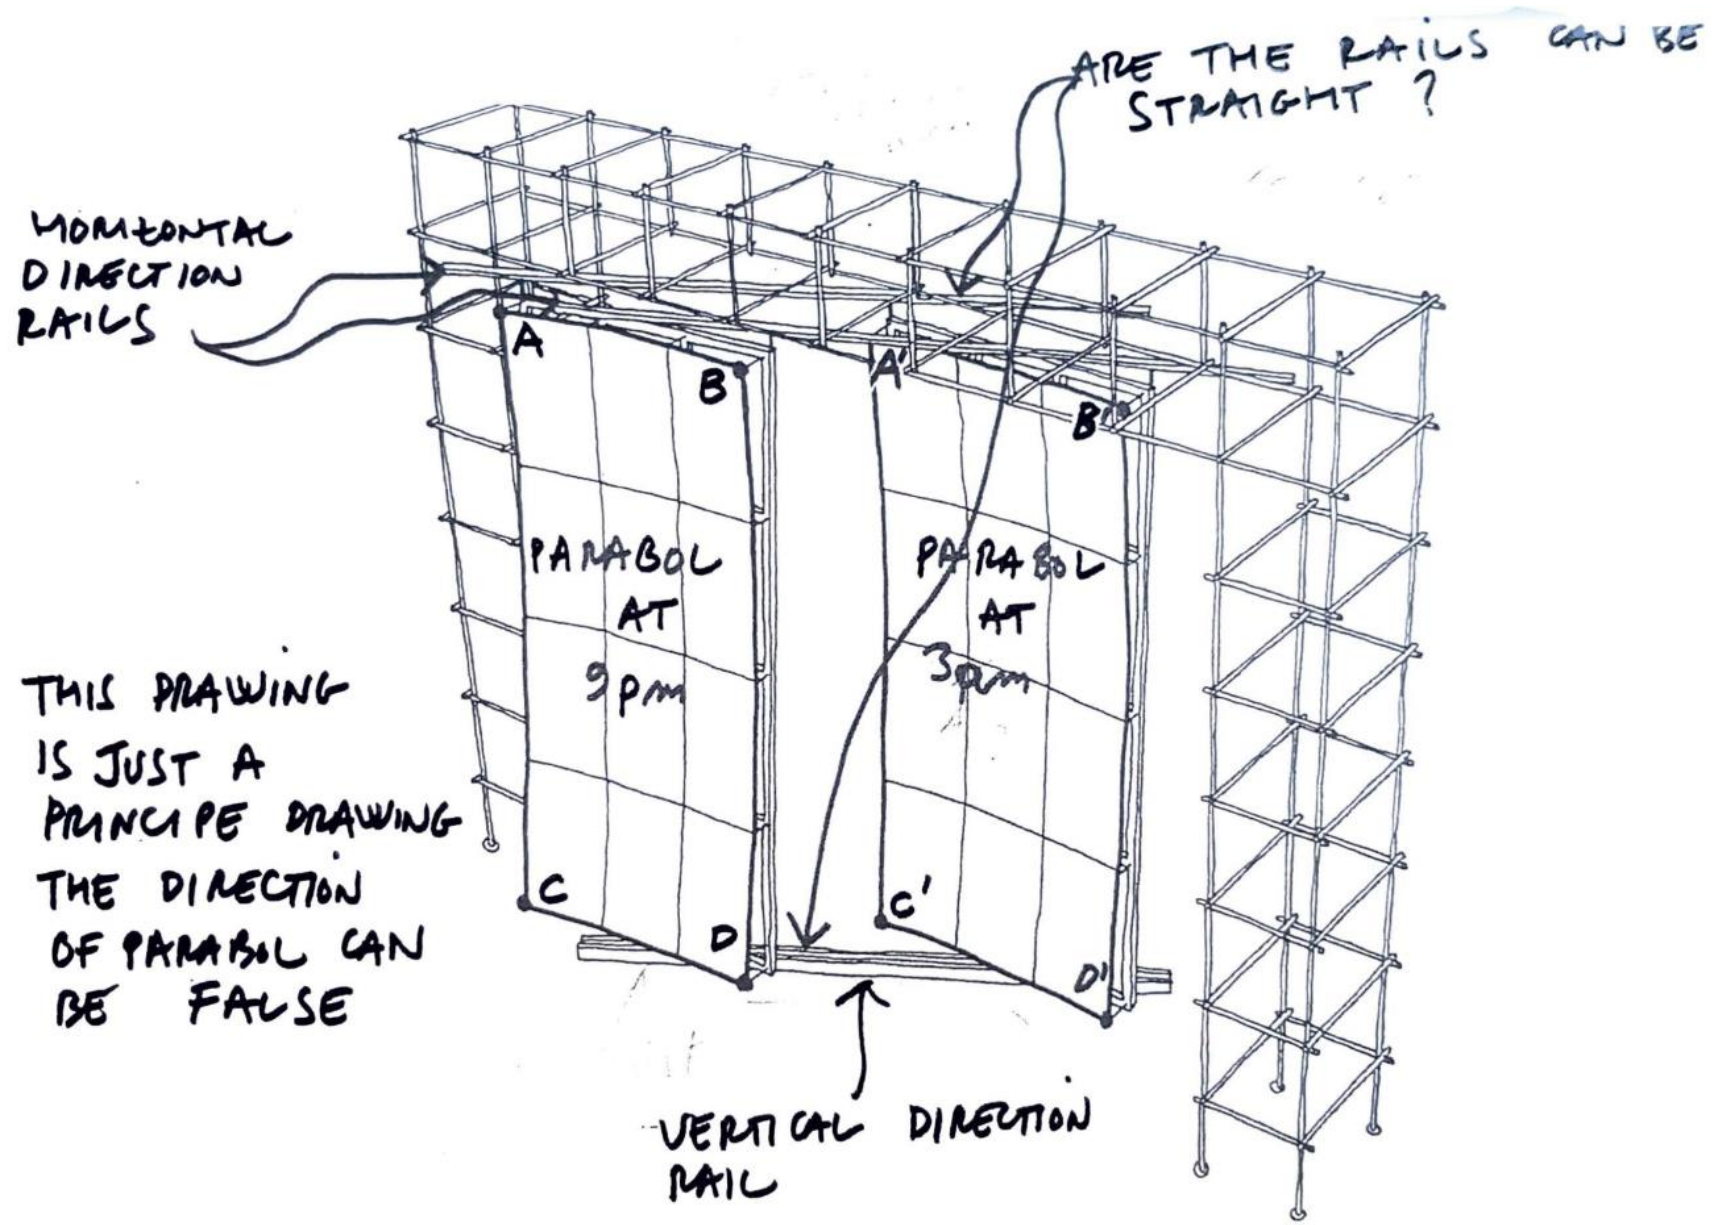 ARE THE RAILS CAN BE
STRAIGHT ?
HORIZONTAL
DIRECTION
RAILS
A
B
A'
B'
PARABOL
AT
9pm
PARABOL
AT
3am
THIS DRAWING
IS JUST A
PRINCIPE DRAWING
THE DIRECTION
OF PARABOL CAN
BE FALSE
C
D
C'
D'
VERTICAL DIRECTION
RAIL